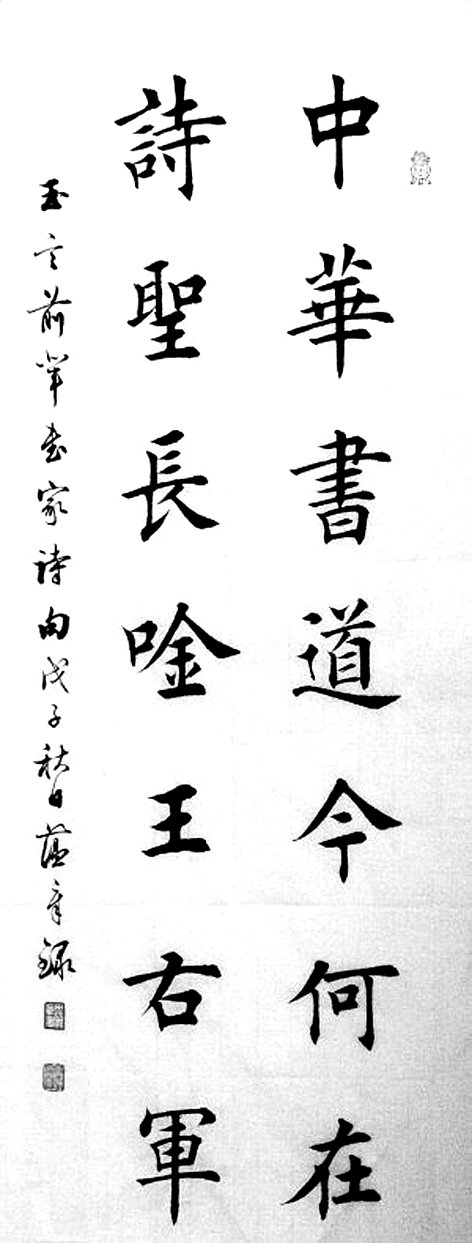 中華書道今何在
詩聖長唫王右軍
玉言前輩書家詩句戊子秋日蘊章録